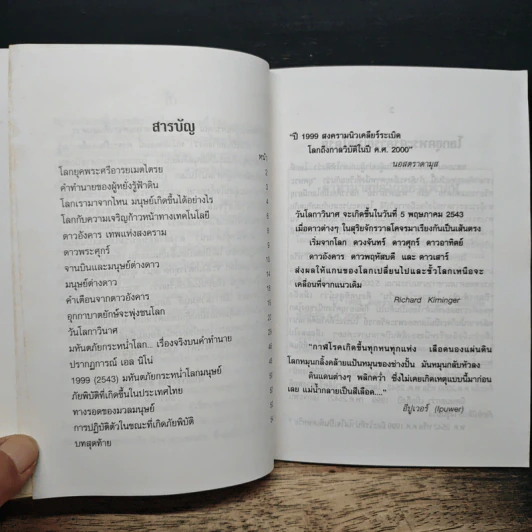 สารบัญ
หน้า
โลกยุคพระศรีอารยเมตไตรย
คำทำนายของผู้หยั่งรู้ฟ้าดิน
โลกเรามาจากไหน มนุษย์เกิดขึ้นได้อย่างไร
โลกกับความเจริญก้าวหน้าทางเทคโนโลยี
ดาวอังคาร เทพแห่งสงคราม
ดาวพระศุกร์
จานบินและมนุษย์ต่างดาว
มนุษย์ต่างดาว
คำเตือนจากดาวอังคาร
อุกกาบาตยักษ์จะพุ่งชนโลก
วันโลกาวินาศ
มหันตภัยกระหน่ำโลก... เรื่องจริงบนคำทำนาย
ปรากฏการณ์ เอล นิโน่
1999 (2543) มหันตภัยกระหน่ำโลกมนุษย์
ภัยพิบัติที่เกิดขึ้นในประเทศไทย
ทางรอดของมวลมนุษย์
การปฏิบัติตัวในขณะที่เกิดภัยพิบัติ
บทสุดท้าย
"ปี 1999 สงครามนิวเคลียร์ระเบิด
โลกถึงกาลวิบัติในปี ค.ศ. 2000"
นอสตราดามุส
วันโลกาวินาศ จะเกิดขึ้นในวันที่ 5 พฤษภาคม 2543
เมื่อดาวต่างๆ ในสุริยจักรวาลโคจรมาเรียงกันเป็นเส้นตรง
เริ่มจากโลก ดวงจันทร์ ดาวศุกร์ ดาวอาทิตย์
ดาวอังคาร ดาวพฤหัสบดี และ ดาวเสาร์
ส่งผลให้แกนของโลกเปลี่ยนไปและขั้วโลกเหนือจะ
เคลื่อนที่จากแนวเดิม
Richard Kiminger
"กาฬโรคเกิดขึ้นทุกหนทุกแห่ง เลือดนองแผ่นดิน
โลกหมุนกลิ้งคล้ายแป้นหมุนของช่างปั้น มันหมุนกลับหัวลง
ดินแดนต่างๆ พลิกคว่ำ ซึ่งไม่เคยเกิดเหตุแบบนี้มาก่อน
เลย แม่น้ำกลายเป็นสีเลือด..."
อีปูเวอร์ (Ipuwer)